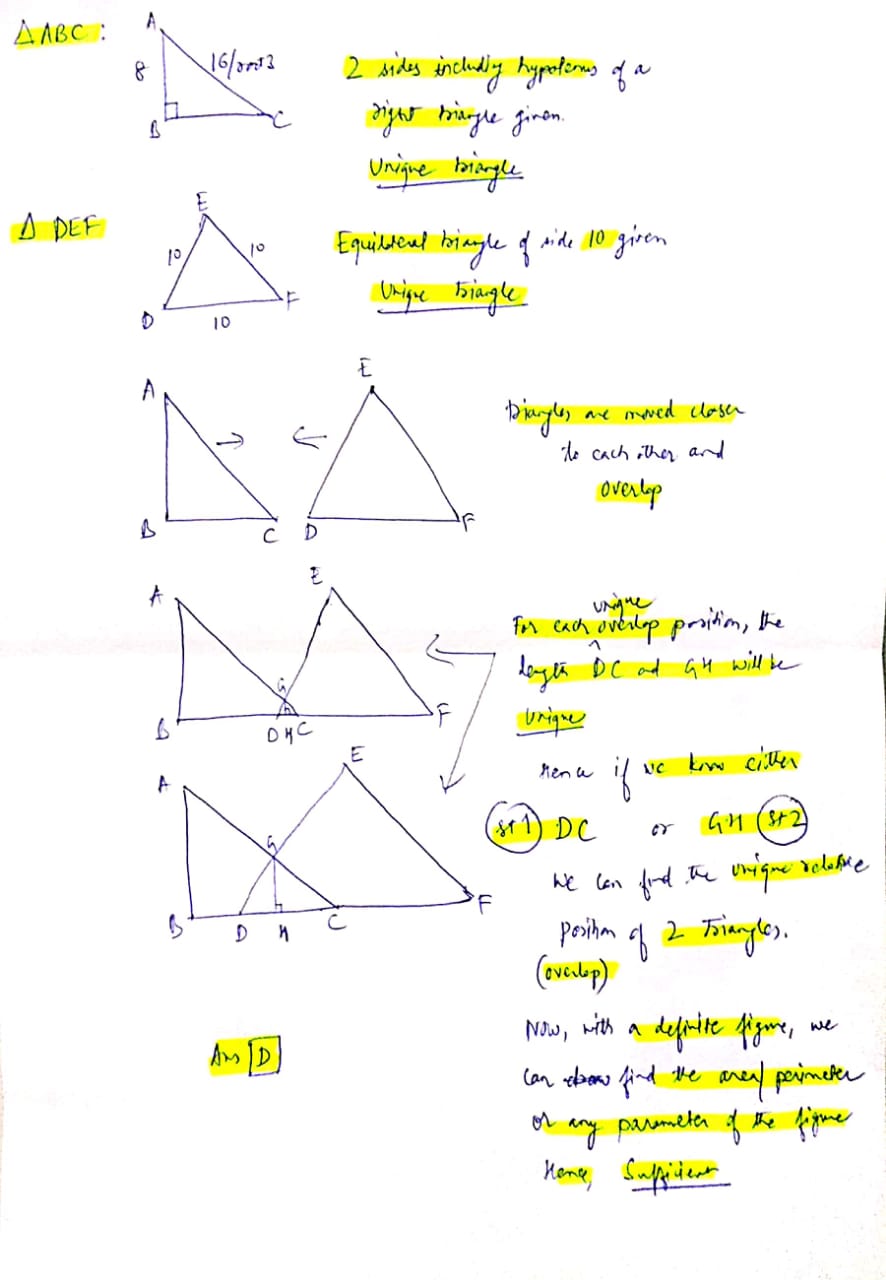 △ABC :
A
8
16/root3
B
C
2 sides including hypotenus of a
right triangle given.
Unique triangle
△ DEF
E
10
10
D
F
10
Equilateral triangle of side 10 given
Unique triangle
A
B
C
E
D
F
triangles are moved closer
to each other and
overlap
A
E
G
B
D H C
F
unique
For each overlap position, the
length DC and GH will be
Unique
Hence if we know either
A
E
G
B
D
H
C
F
St1 DC or GH St2
we can find the unique relative
position of 2 Triangles.
(overlap)
Now, with a definite figure, we
can find the area/perimeter
or any parameter of the figure
Hence, Sufficient
Ans D